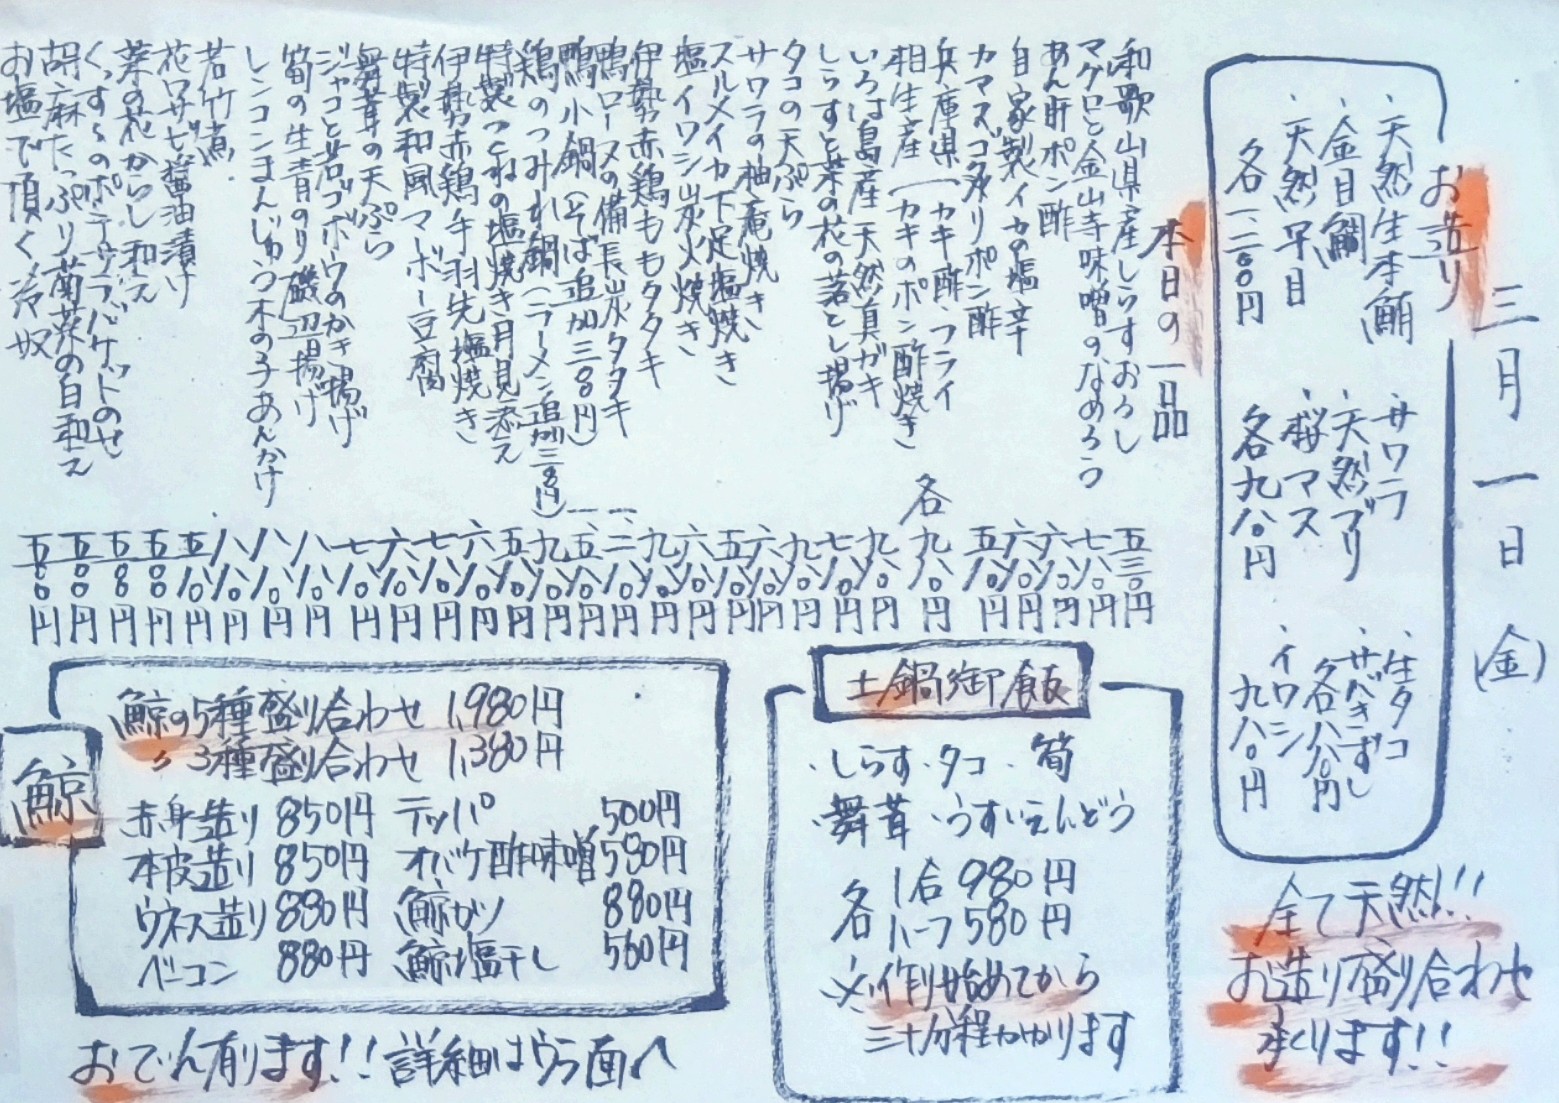 三月一日(金)
お造り
・天然生本鮪
・金目鯛
・天然平目
各一、二〇〇円
・サワラ
・天然ブリ
・桜マス
各九八〇円
・生タコ
・サバきずし
各八八〇円
・イワシ
九八〇円
全て天然!!
お造り盛り合わせ
承ります!!
本日の一品
和歌山県産しらすおろし 五三〇円
マグロと金山寺味噌のなめろう 七八〇円
あん肝ポン酢 六八〇円
自家製イカの塩辛 六八〇円
カマスゴ炙りポン酢 五八〇円
兵庫県(カキ酢・フライ
相生産(カキのポン酢焼き 各九八〇円
いろは島産天然真ガキ 九八〇円
しらすと菜の花の落とし揚げ 七八〇円
タコの天ぷら 九八〇円
サワラの柚庵焼き 六八〇円
スルメイカ下足塩焼き 五八〇円
塩イワシ炭火焼き 六八〇円
伊勢赤鶏ももタタキ 九八〇円
鴨ロースの備長炭タタキ 一、二八〇円
鴨小鍋(そば追加三八〇円) 一、五八〇円
鶏のつみれ鍋(ラーメン追加三八〇円) 九八〇円
特製つくねの塩焼き月見添え 五八〇円
伊勢赤鶏手羽先塩焼き 六八〇円
特製和風マーボー豆腐 七八〇円
舞茸の天ぷら 六八〇円
ジャコと岩ゴボウのかき揚げ 七八〇円
筍の生青のり磯辺揚げ 八八〇円
レンコンまんじゅう木の子あんかけ 八八〇円
若竹煮 八八〇円
花ワサビ醤油漬け 五八〇円
菜の花からし和え 五八〇円
くんすらのポテサラバケットのせ 五八〇円
胡麻たっぷり菊菜の白和え 五八〇円
お塩で頂く冷奴 五八〇円
土鍋御飯
・しらす・タコ・筍
・舞茸・うすいえんどう
各 1合 980円
ハーフ 580円
※作り始めてから
三十分程かかります
鯨
鯨の5種盛り合わせ 1,980円
〃3種盛り合わせ 1,380円
赤身造り 850円 テッパ 500円
本皮造り 850円 オバケ酢味噌 580円
ウネス造り 880円 鯨カツ 880円
ベーコン 880円 鯨塩干し 560円
おでん有ります!!詳細はウラ面へ